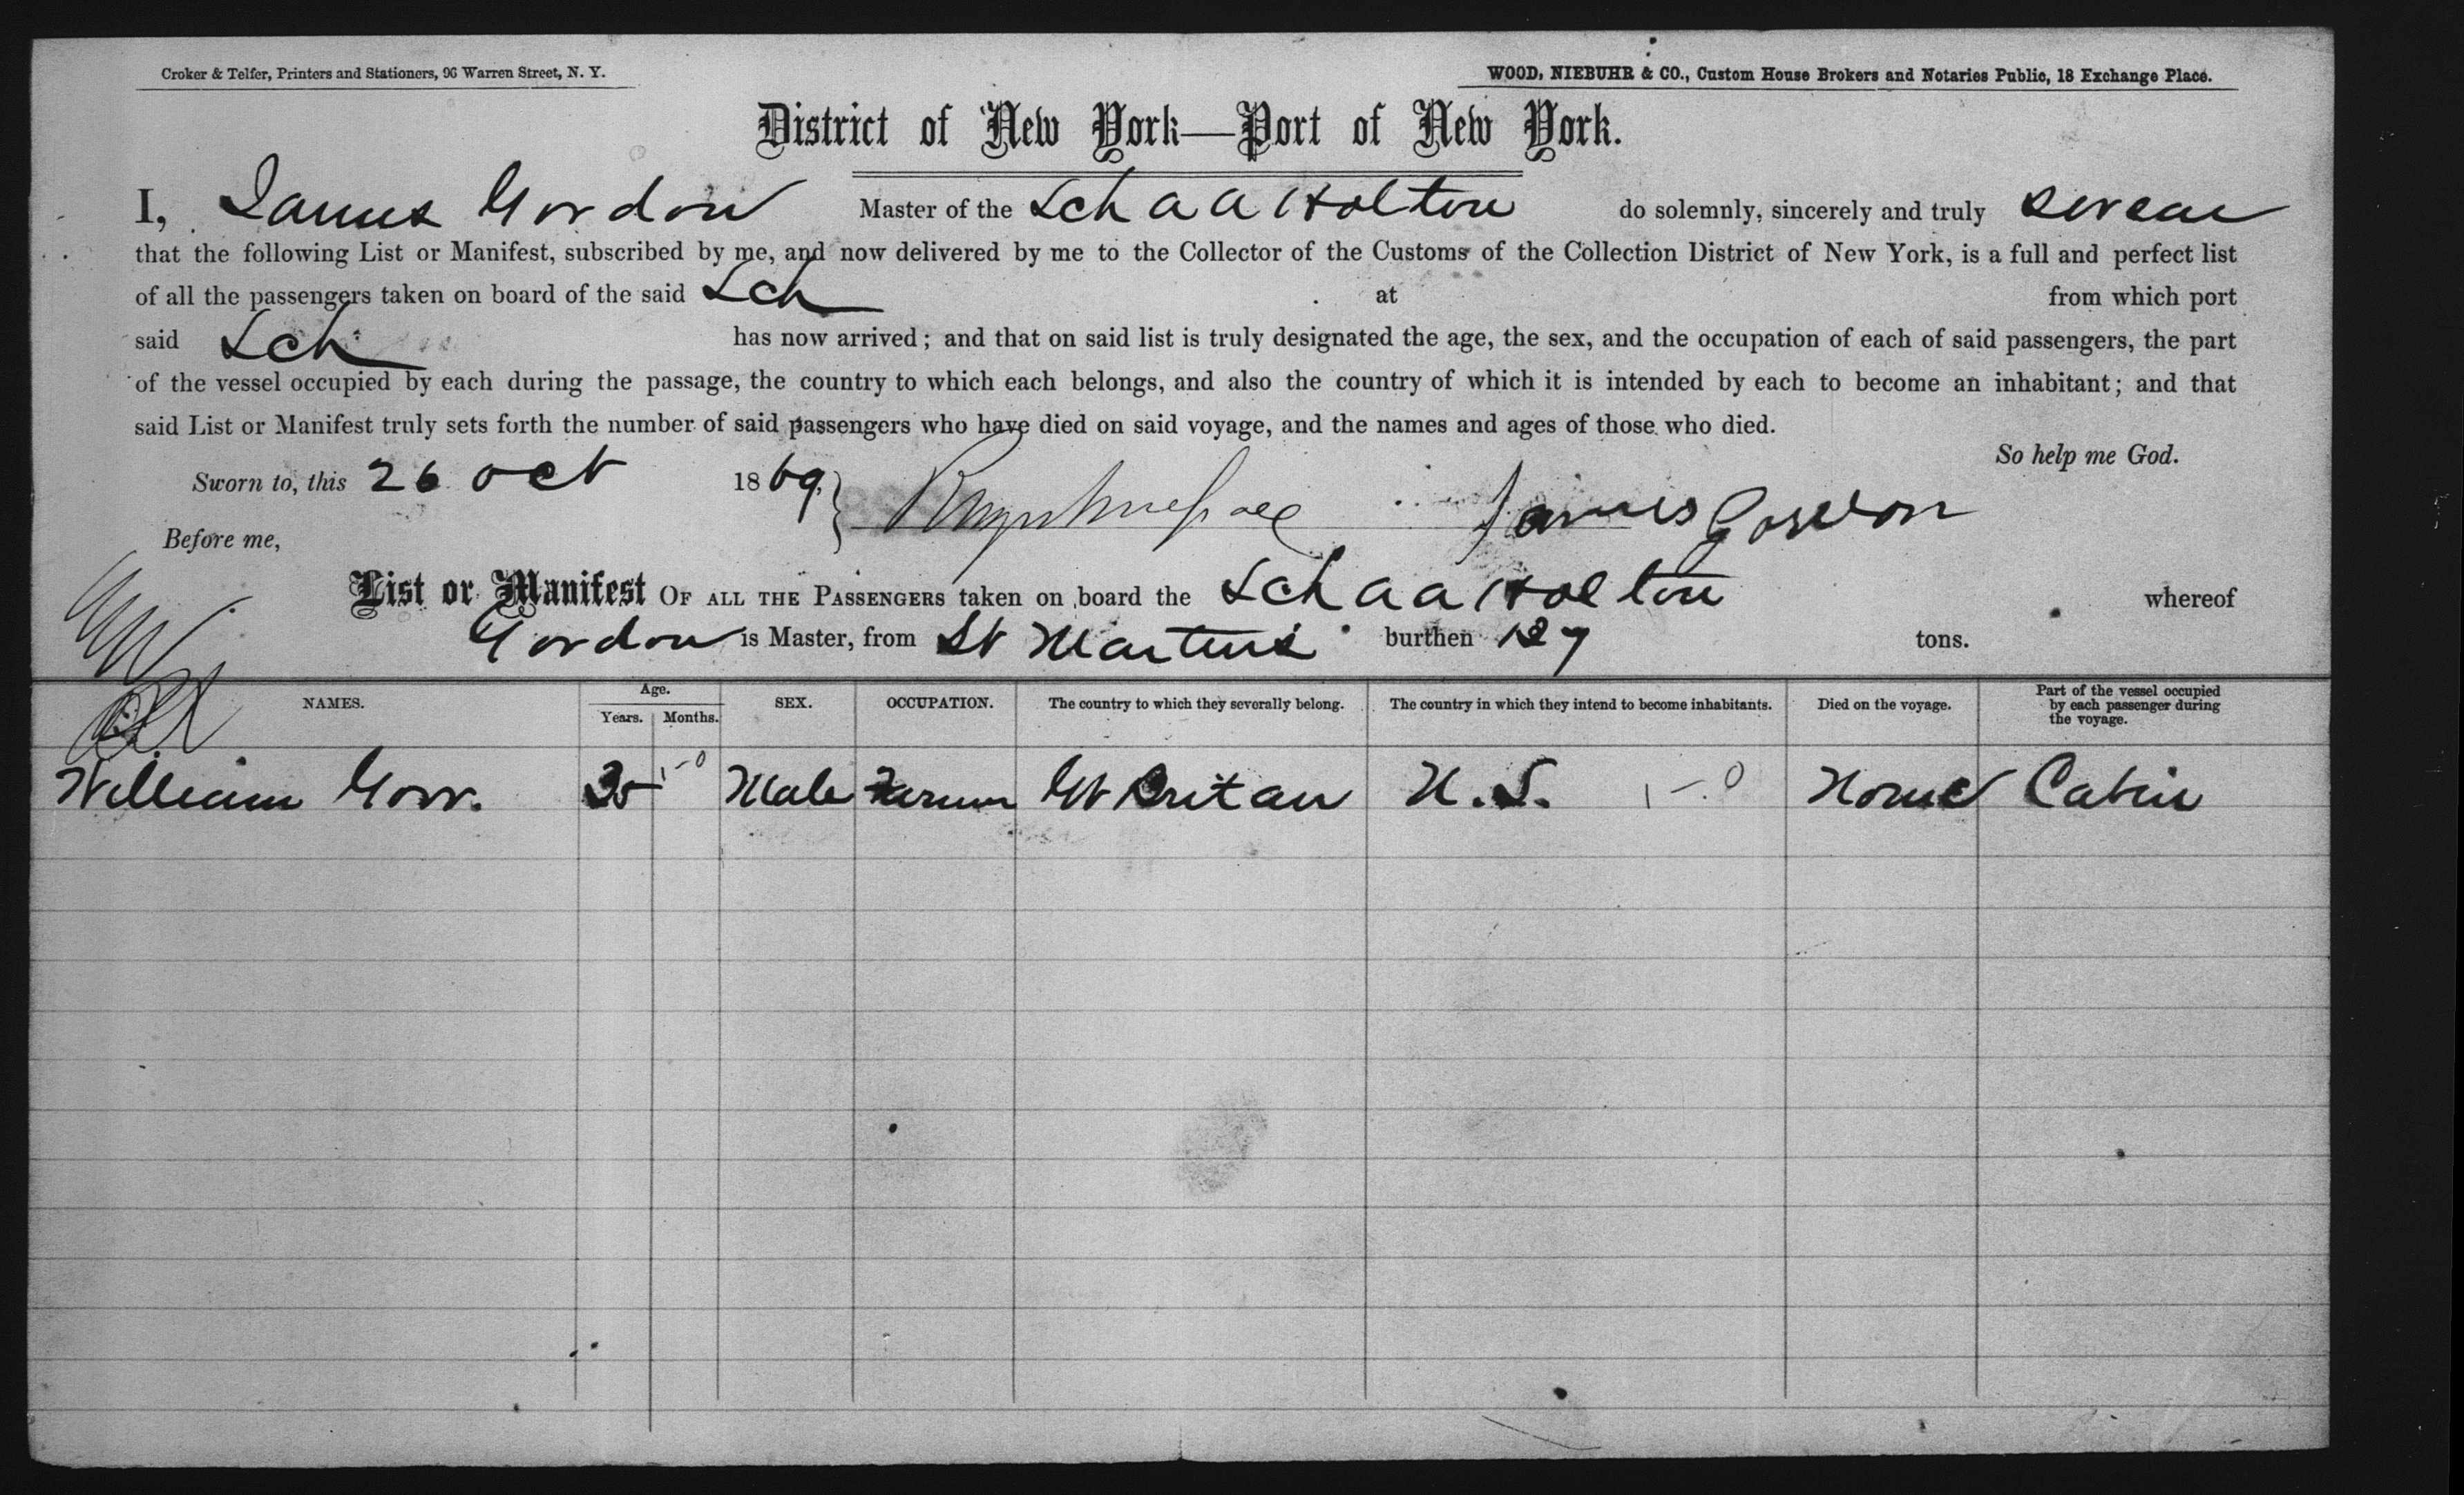 Croker & Telfer, Printers and Stationers, 96 Warren Street, N. Y.
WOOD, NIEBUHR & CO., Custom House Brokers and Notaries Public, 18 Exchange Place.
District of New York—Port of New York.
I, James Gordon Master of the Sch A A Holton do solemnly, sincerely and truly swear
that the following List or Manifest, subscribed by me, and now delivered by me to the Collector of the Customs of the Collection District of New York, is a full and perfect list
of all the passengers taken on board of the said Sch at from which port
said Sch has now arrived; and that on said list is truly designated the age, the sex, and the occupation of each of said passengers, the part
of the vessel occupied by each during the passage, the country to which each belongs, and also the country of which it is intended by each to become an inhabitant; and that
said List or Manifest truly sets forth the number of said passengers who have died on said voyage, and the names and ages of those who died.
So help me God.
Sworn to, this 26 Oct 1869, James Gordon
Before me,
List or Manifest OF ALL THE PASSENGERS taken on board the Sch A A Holton whereof
Gordon is Master, from St Martins burthen 127 tons.
NAMES. Age. Years. Months. SEX. OCCUPATION. The country to which they severally belong. The country in which they intend to become inhabitants. Died on the voyage. Part of the vessel occupied by each passenger during the voyage.
William 35 Male Farmer Gt Britan U.S. None Cabin